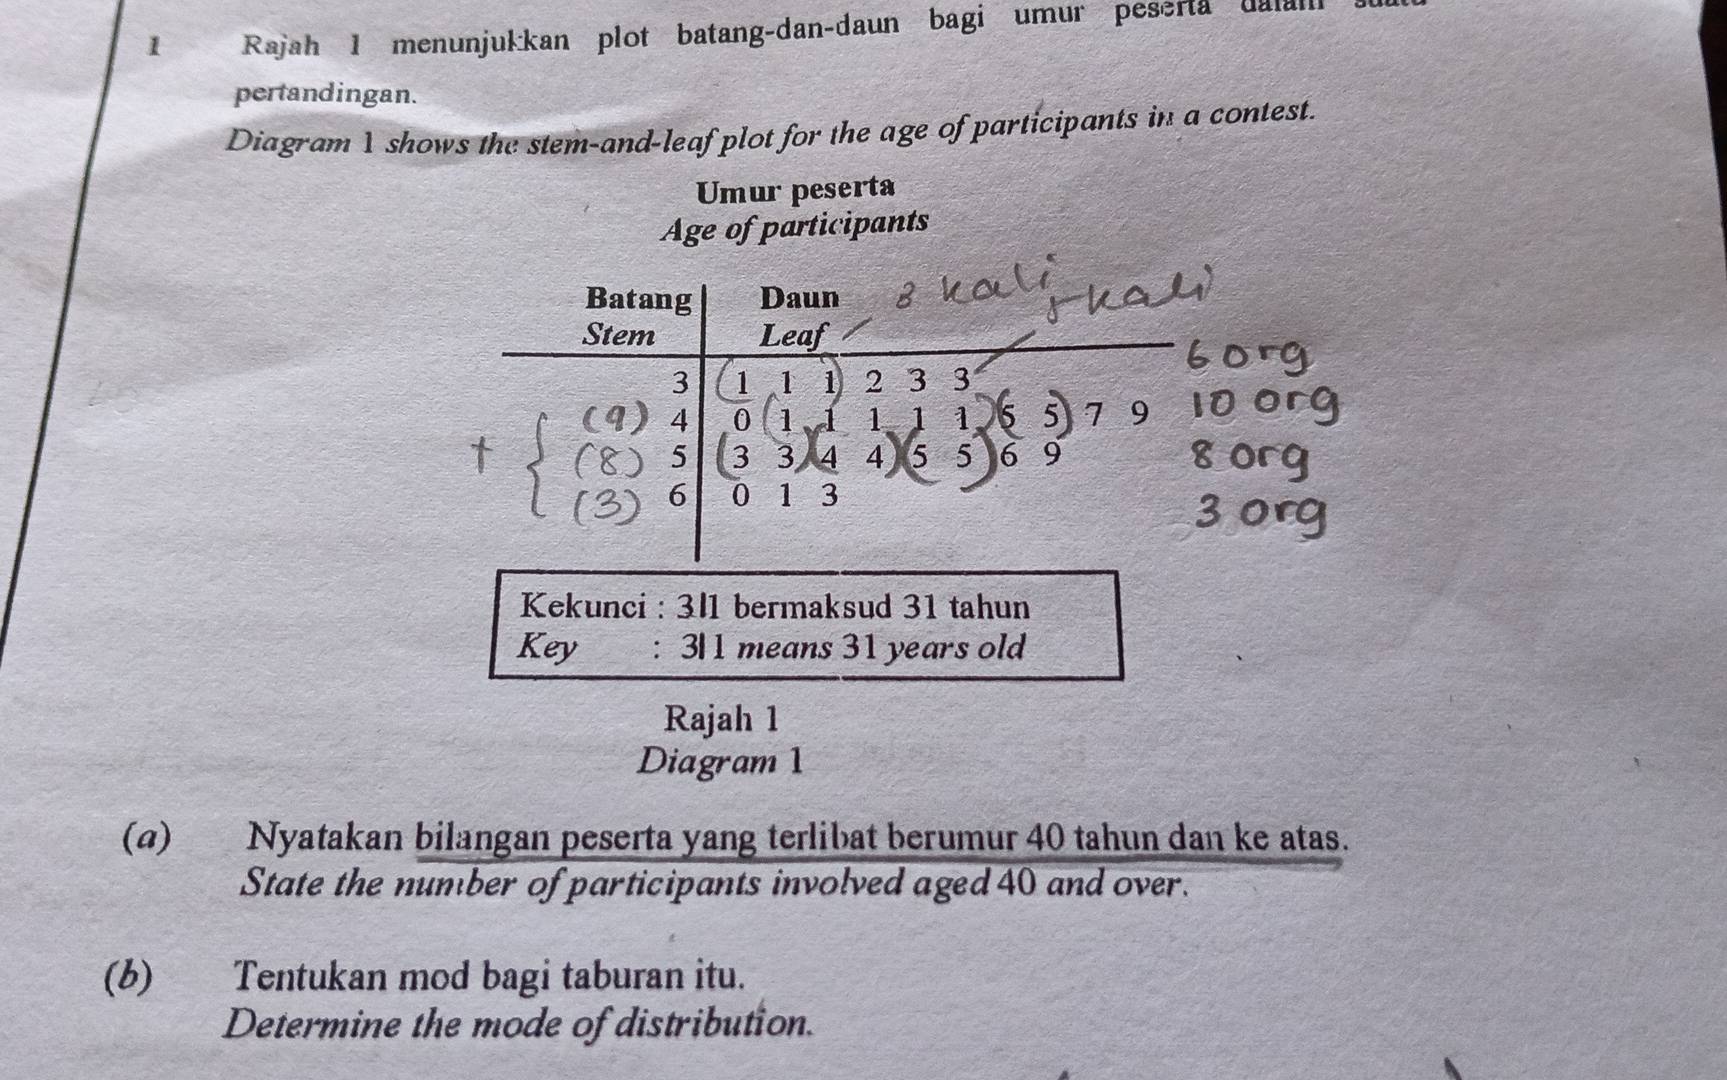 1 Rajah 1 menunjukkan plot batang-dan-daun bagi umur peserta dalam
pertandingan.
Diagram 1 shows the stem-and-leaf plot for the age of participants in a contest.
Umur peserta
Age of participants
Batang Daun 3 kali kali
Stem Leaf
3 (1 1 1) 2 3 3 6 org
(9) 4 0 (1 1 1 1 1)(5 5) 7 9 10 org
+ { (8) 5 (3 3)(4 4)(5 5) 6 9 8 org
(3) 6 0 1 3 3 org
Kekunci : 3|1 bermaksud 31 tahun
Key : 3|1 means 31 years old
Rajah 1
Diagram 1
(a) Nyatakan bilangan peserta yang terlibat berumur 40 tahun dan ke atas.
State the number of participants involved aged 40 and over.
(b) Tentukan mod bagi taburan itu.
Determine the mode of distribution.